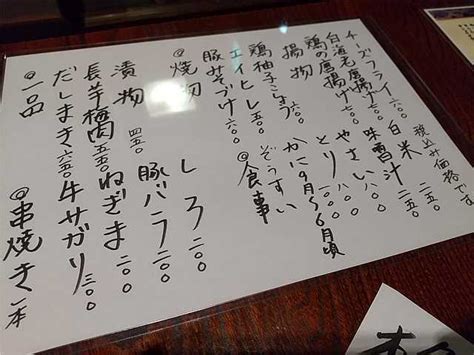 @一品
だしまき 六五〇
長芋梅肉 五五〇
漬物 四五〇
@焼物
豚みそづけ
エイヒレ 五五〇
鶏柚子こしょう 六〇〇
揚物
鶏の唐揚げ
白海老唐揚げ
チーズフライ
@串焼き 一本
牛サガリ 三〇〇
ねぎま 二〇〇
豚バラ 二〇〇
しろ 二〇〇
@食事
ぞうすい
かに 9月〜6月頃
とり 八〇〇
やさい 八〇〇
味噌汁 二五〇
白米 二五〇
税込み価格です